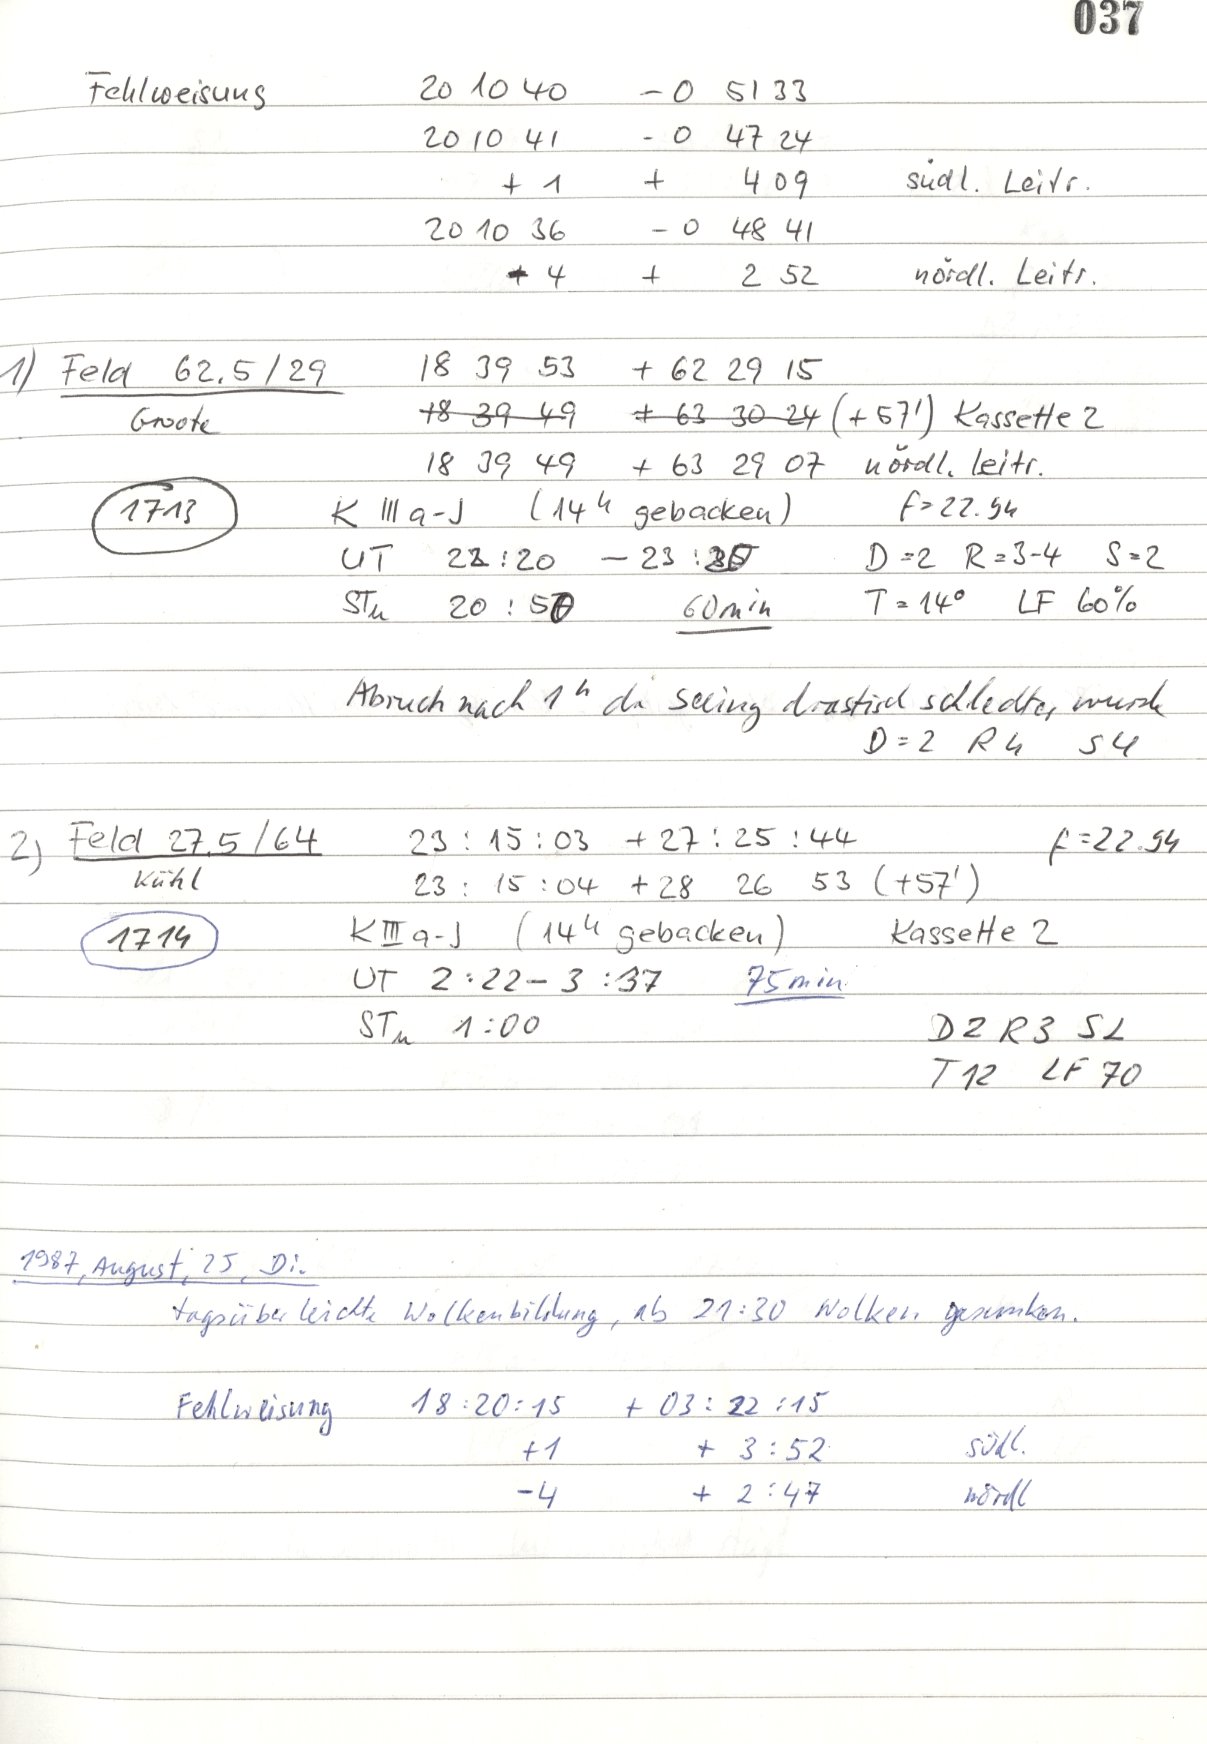 037
Fehlweisung 20 10 40 - 0 51 33
20 10 41 - 0 47 24
+ 1 + 4 09 südl. Leitr.
20 10 36 - 0 48 41
+ 4 + 2 52 nördl. Leitr.
1) Feld 62.5/29 18 39 53 + 62 29 15
Groote 18 39 49 + 63 30 24 (+57') Kassette 2
18 39 49 + 63 29 07 nördl. Leitr.
1713 K IIIa-J (14h gebacken) f=22.94
UT 22:20 - 23: D=2 R=3-4 S=2
STu 20:50 60min T=14° LF 60%
Abruch nach 1h da seeing drastisch schlechter wurde
D=2 R4 S4
2) Feld 27.5/64 23:15:03 +27:25:44 f=22.94
Kühl 23:15:04 +28 26 53 (+57')
1714 K III a-J (14h gebacken) Kassette 2
UT 2:22 - 3:37 75min
STu 1:00 D2 R3 S2
T12 LF 70
1987, August, 25, Di.
tagsüber leichte Wolkenbildung, ab 21:30 Wolken gesunken.
Fehlweisung 18:20:15 + 03:22:15
+1 + 3:52 südl.
-4 + 2:47 nördl